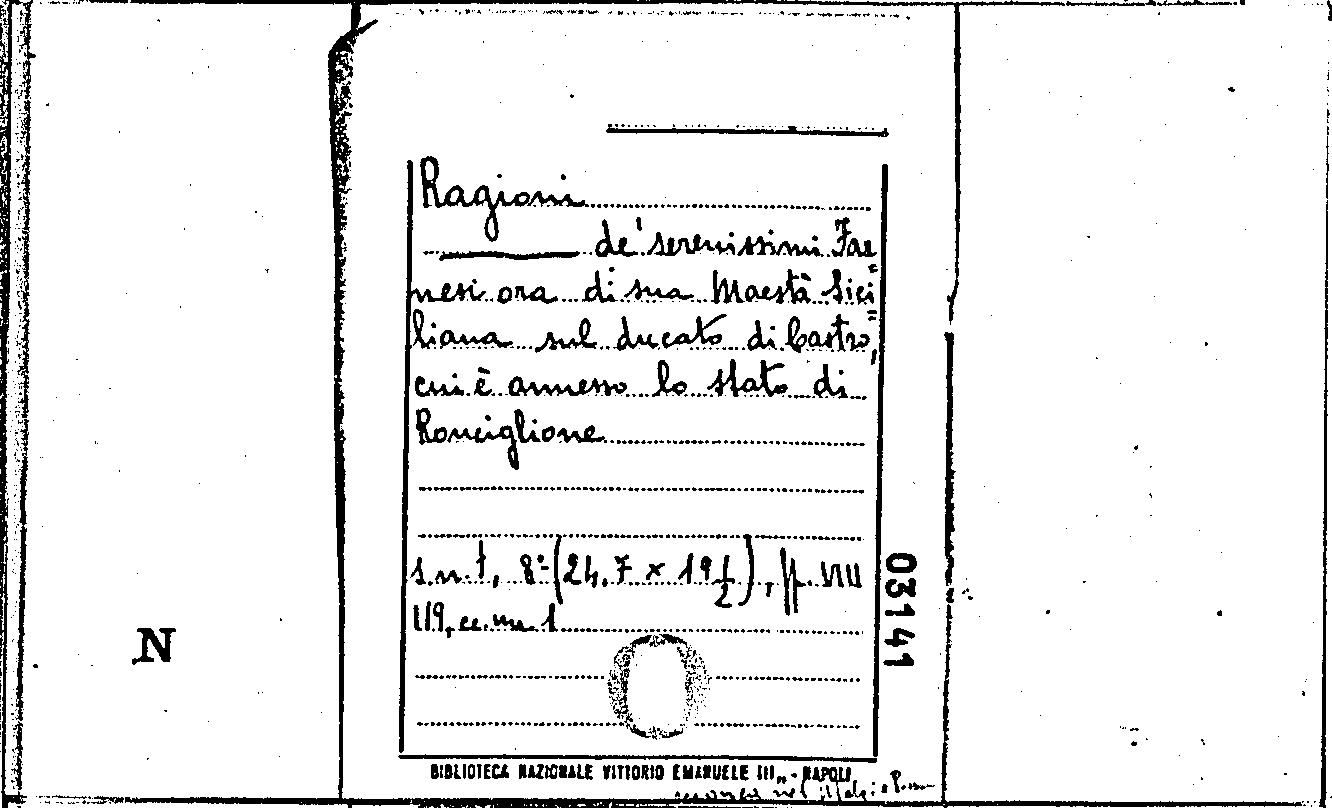 Ragioni
de' serenissimi Far=
nesi ora di sua Maestà Sici=
liana sul ducato di Castro,
cui è annesso lo stato di
Ronciglione
s.n.t, 8° (24,7 x 19 1/2), pp. VIII
119, cc. nn. 1
03141
N
BIBLIOTECA NAZIONALE VITTORIO EMANUELE III„ - NAPOLI